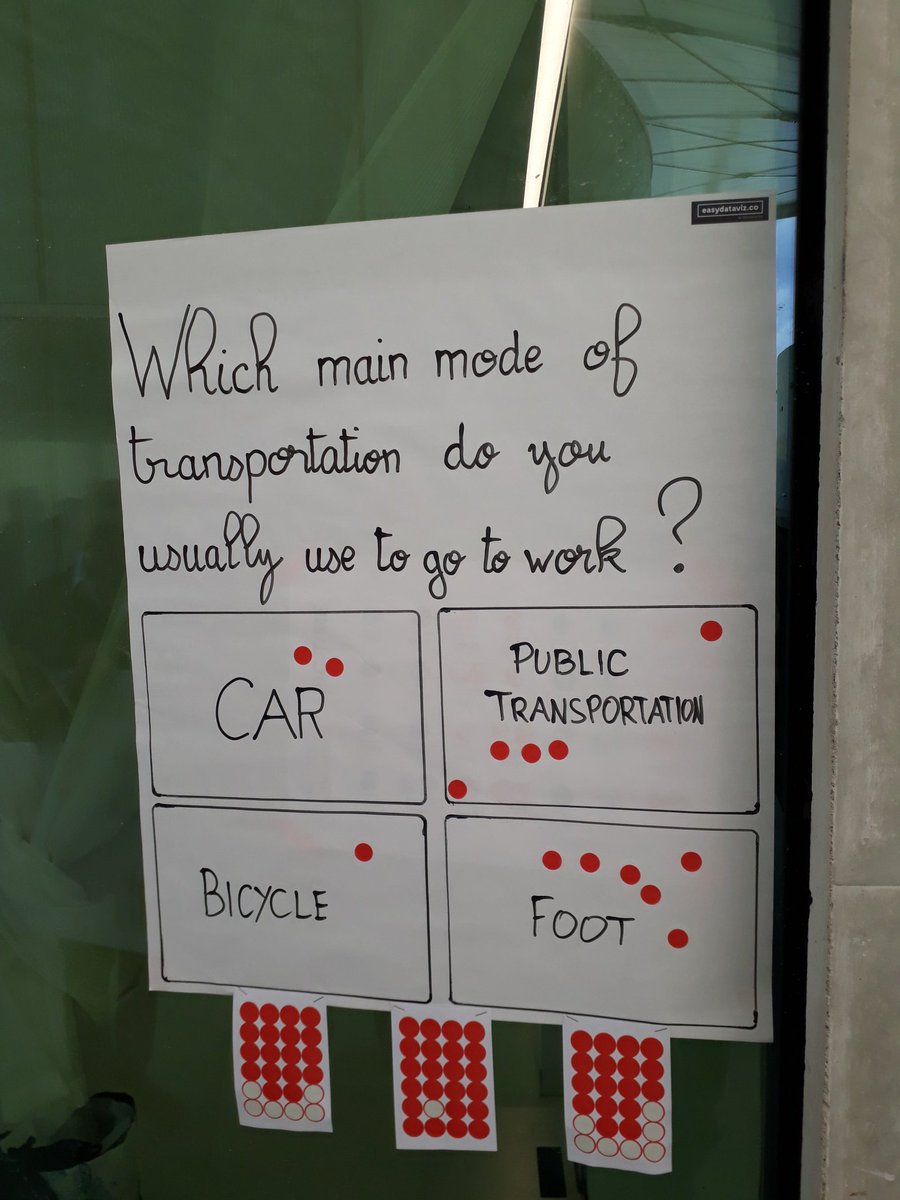 easydataviz.co
Which main mode of
transportation do you
usually use to go to work ?
CAR
PUBLIC
TRANSPORTATION
BICYCLE
FOOT